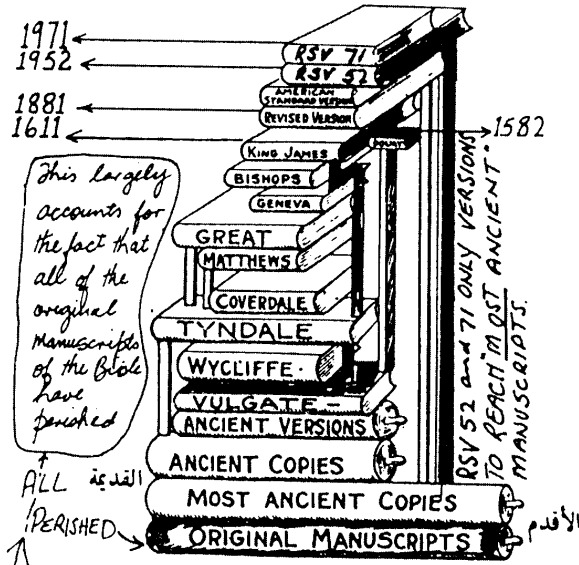 1971
1952
1881
1611
1582
RSV 71
RSV 52
AMERICAN
STANDARD VERSION
REVISED VERSION
DOUAY
KING JAMES
BISHOPS
GENEVA
GREAT
MATTHEWS
COVERDALE
TYNDALE
WYCLIFFE.
VULGATE -
ANCIENT VERSIONS
ANCIENT COPIES
MOST ANCIENT COPIES
ORIGINAL MANUSCRIPTS
This largely
accounts for
the fact that
all of the
original
manuscripts
of the Bible
have
perished
ALL
PERISHED
القديمة
الأقدم
RSV 52 and 71 ONLY VERSIONS
TO REACH "MOST ANCIENT"
MANUSCRIPTS.